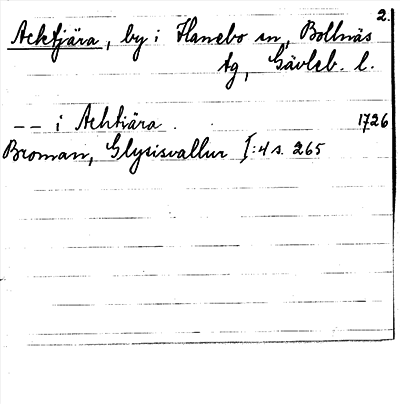 2.
Acktjära, by i Hanebo sn, Bollnäs
tg, Gävleb. l.
-- i Achtiära . . 1726
Broman, Glysisvallur I:4 s. 265